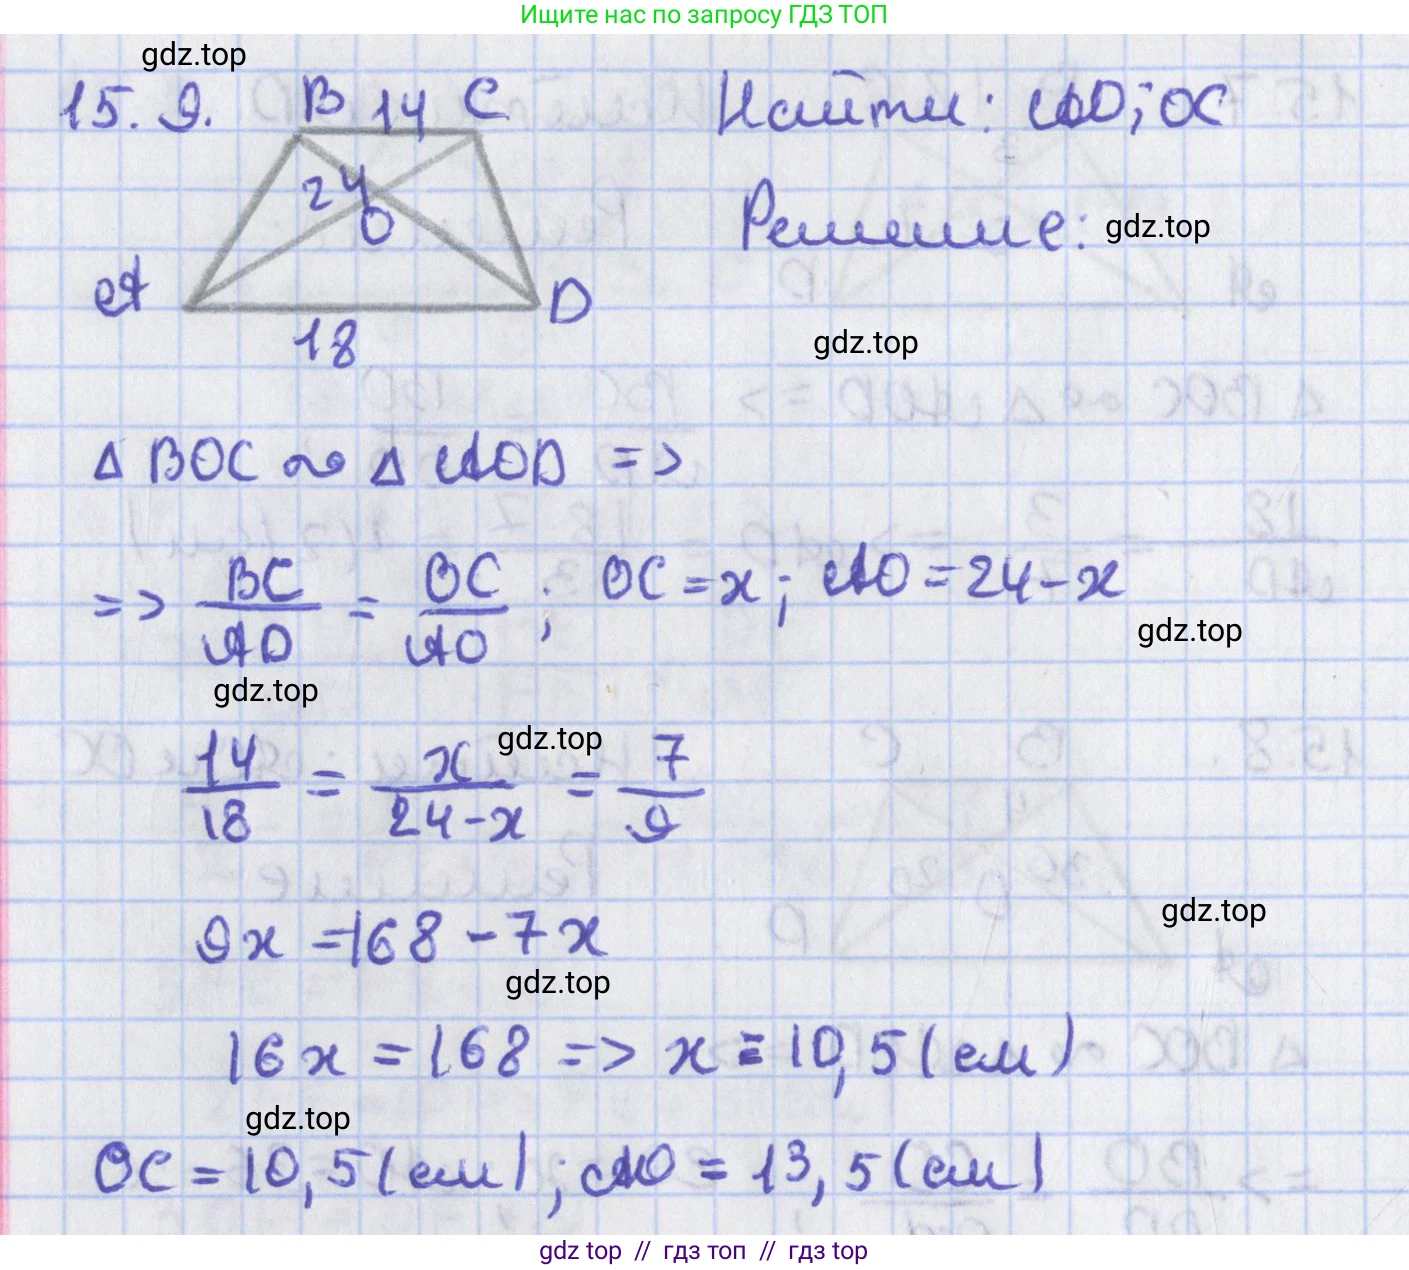 Ищите нас по запросу ГДЗ ТОП
gdz.top
15.9. B 14 C Найти: AO; OC
24
O
Решение: gdz.top
A D
18
gdz.top
Δ BOC ∾ Δ AOD =>
=> BC/AD = OC/AO ; OC = x; AO = 24 - x
gdz.top
gdz.top
gdz.top
14/18 = x/24-x = 7/9
gdz.top
9x = 168 - 7x
gdz.top
16x = 168 => x = 10,5 (см)
gdz.top
OC = 10,5 (см); AO = 13,5 (см)
gdz top // гдз топ // гдз top